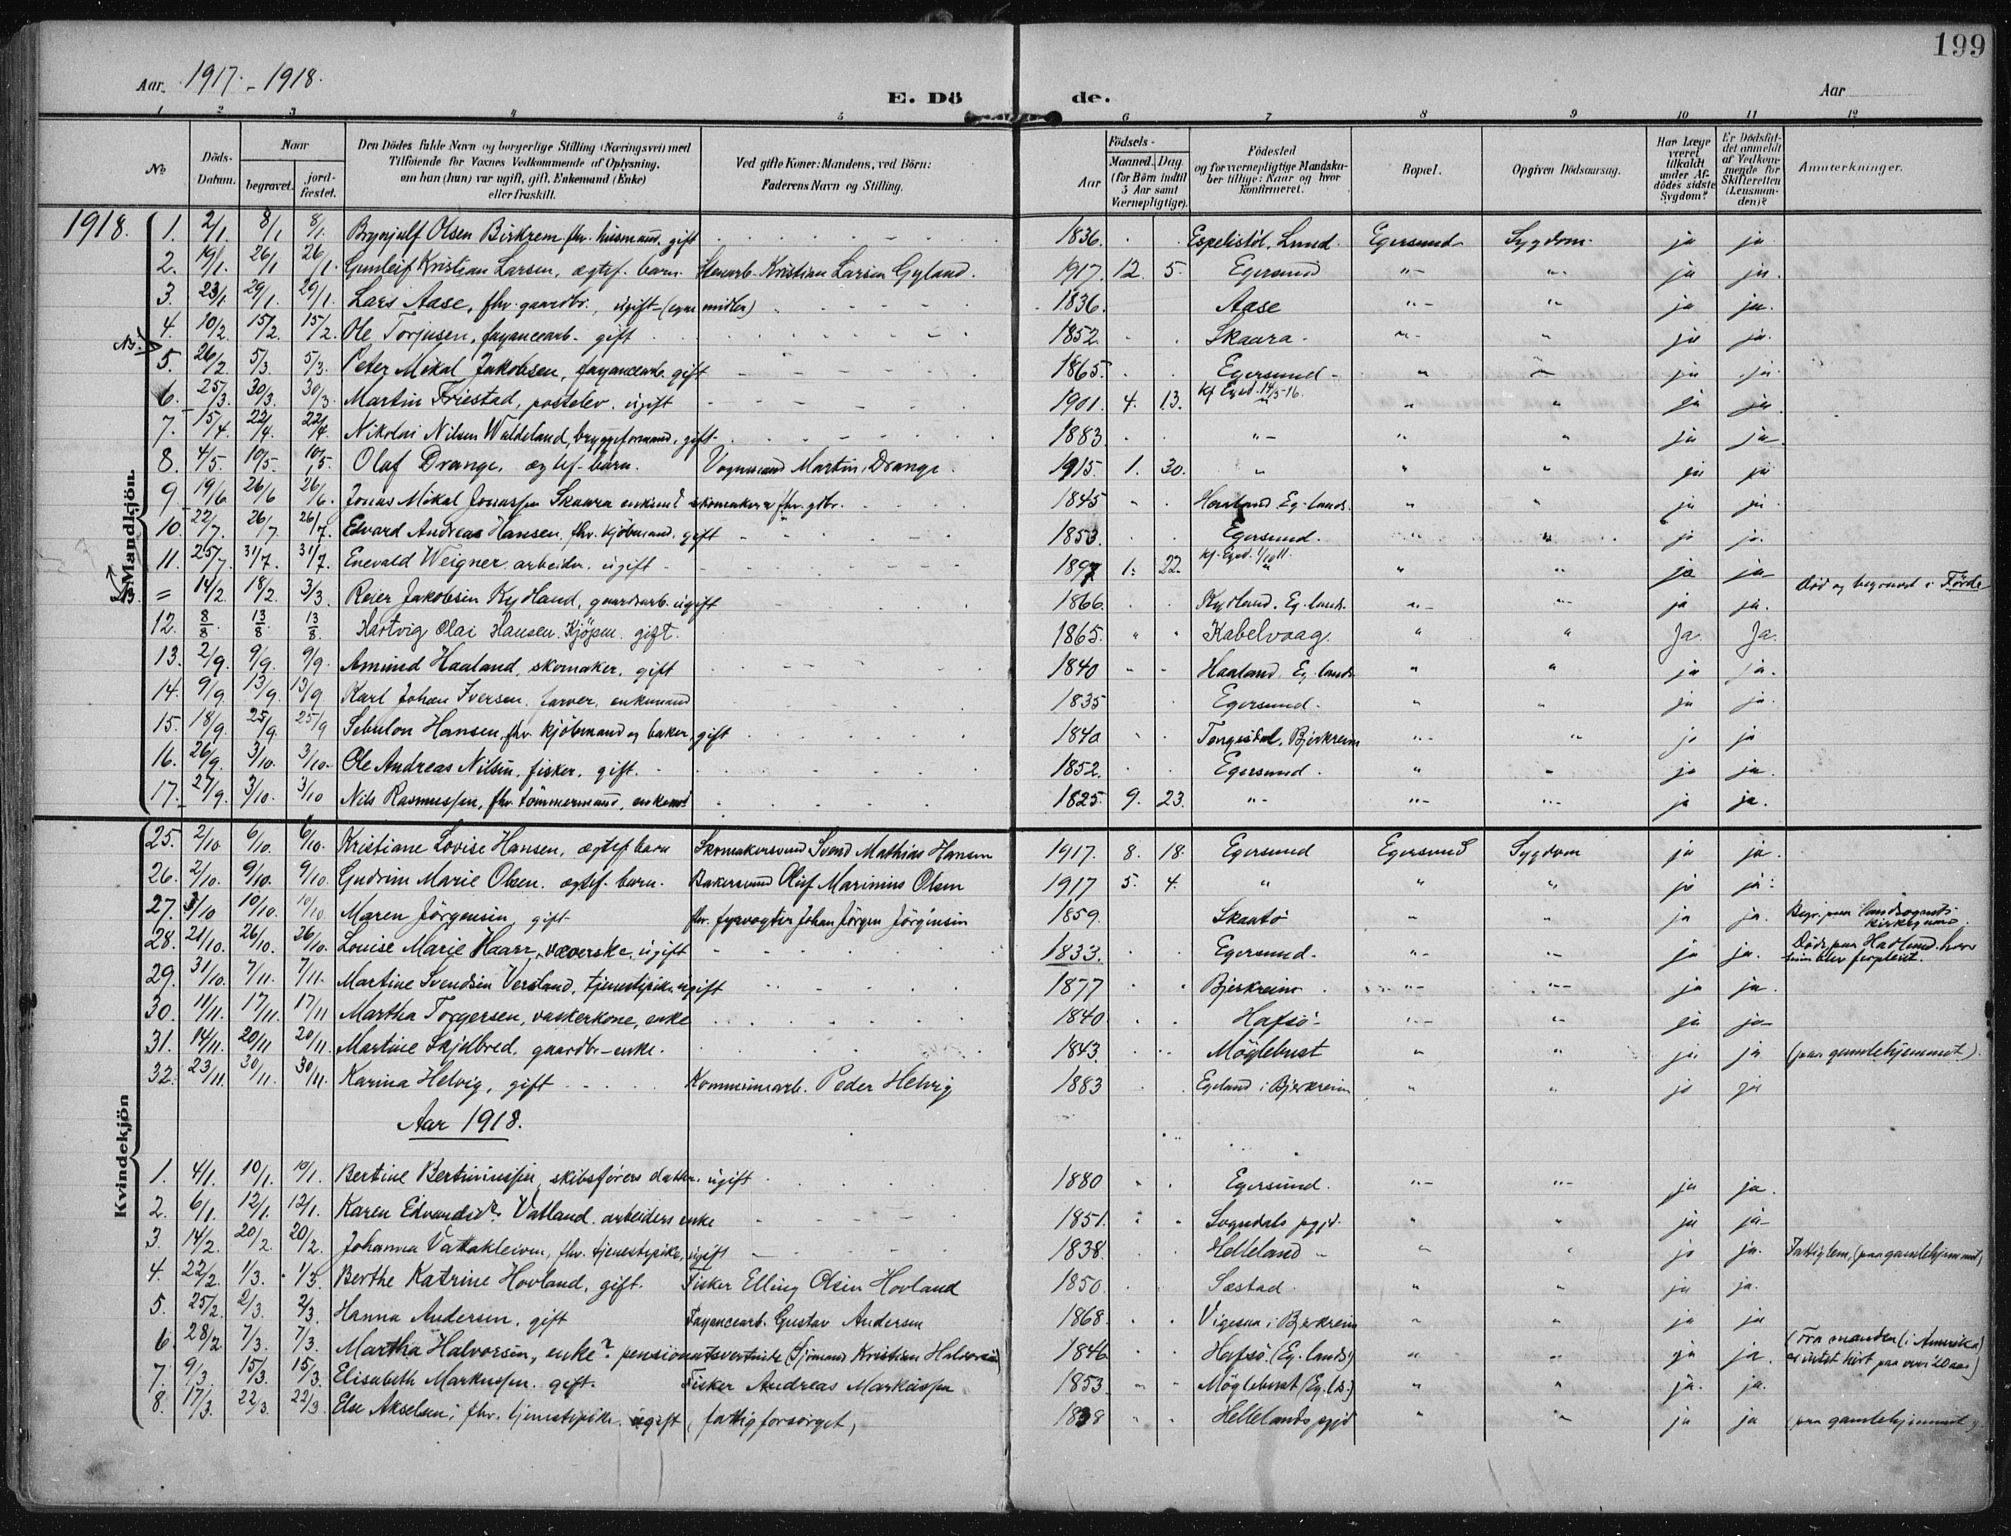 199
Aar 1917 - 1918.
E. Dö de.
Aar
1 2 3 4 5 6 7 8 9 10 11 12
No
Döds-Datum.
Naar
begravet.
jord-fæstet.
Den Dödes fulde Navn og borgerlige Stilling (Næringsvei) med
Tilföiende for Voxnes Vedkommende af Oplysning,
om han (hun) var ugift, gift, Enkemand (Enke)
eller fraskilt.
Ved gifte Koner: Mandens, ved Börn:
Faderens Navn og Stilling.
Födsels-
Aar
Maaned. Dag
(for Börn indtil
5 Aar samt
Værnepligtige).
Födested
og for værnepligtige Mandska-
ber tillige: Naar og hvor
konfirmeret.
Bopæl.
Opgiven Dödsaarsag.
Har Læge
været
tilkaldt
under Af-
dödes sidste
Sygdom?
Er Dödsfal-
det anmeldt
af Vedkom-
mende for
Skifteretten
(Lensman-
den)?
Anmerkninger.
Mandkjön.
1918. 1. 2/1. 8/1 8/1. Brynjulf Olsen Birkrem fhv. husmand, gift 1836. Espelistöl, Lund. Egersund Sygdom ja ja
2. 19/1. 26/1 26/1. Gunleif Kristian Larsen, ægtef. barn. Stenarb. Kristian Larsen Gyland. 1917. 12. 5. Egersund " " ja ja.
3. 23/1. 29/1. 29/1. Lars Aase, fhv. gaardbr., ugift (egne midler) 1836. Aase " " ja ja.
4. 10/2. 15/2. 15/2. Ole Torjusen, fayancearb. gift 1852. Skaara " " ja ja.
5. 26/2. 5/3. 5/3. Peter Mikal Jakobsen, fayancearb. gift 1865. Egersund " " ja ja.
6. 25/3. 30/3. 30/3. Martin Friestad, postelev. ugift 1901. 4. 13. kf. Egsd. 14/5-16. " " ja ja
7. 15/4. 22/4. 22/4. Nikolai Nilsen Waldeland, bryggeformand, gift 1883. " " " ja ja
8. 4/5. 10/5. 10/5. Olaf Drange, ægtef. barn. Vognmand Martin Drange. 1915. 1. 30. " " " ja ja
9. 19/6 26/6 26/6. Jonas Mikal Jonassen Skaara enkemd skomaker fhv. gbr. 1845 Haaland Eg. lands. " " ja ja
10. 22/7. 26/7. 26/7. Edvard Andreas Hansen, fhv. kjøbmand, gift 1853. Egersund. " " ja ja.
11. 25/7. 31/7. 31/7. Enevald Weigner arbeider. ugift 1897 1. 22. kf. Egsd. 1/10 11. " " ja ja
= 14/2. 18/2. 3/3. Reier Jakobsen Kydland, gaardarb. ugift 1866. Kydland, Eg. lands. " " ja ja. Död og begravet i Förde
12. 8/8. 13/8. 13/8. Hartvig Olai Hansen Kjöpm. gift. 1865. " " Kabelvaag. " " Ja. Ja.
13. 2/9. 9/9. 9/9. Amund Haaland, skomaker, gift 1840 Haaland, Eg. lands. " " ja ja.
14. 9/9. 13/9. 13/9. Karl Johan Iversen, farver, enkemand 1835 Egersund. " " ja ja.
15. 18/9. 25/9. 25/9 Sebulon Hansen, fhv. kjöbmand og baker, gift 1840 Bjerkreim " " ja ja
16. 26/9. 3/10. 3/10. Ole Andreas Nilsen, fisker, gift. 1852. Egersund. " " ja ja.
17. 27/9. 3/10. 3/10 Nils Rasmussen, fhv. tömmermand, enkemd 1825. 9. 23. " " " ja ja.
Kvindekjön
25. 2/10 6/10. 6/10. Kristiane Lovise Hansen, ægtef. barn Skomakersvend Svend Mathias Hansen 1917. 8. 18. Egersund Egersund Sygdom ja ja.
26. 2/10. 9/10. 9/10. Gudrun Marie Olsen. ægtef. barn. Bakersvend Oluf Marinius Olsen 1917 5. 4. " " " ja ja.
27. 3/10 10/10. 10/10. Maren Jörgensen, gift fhv. fyrvogter Johan Jörgen Jörgensen 1859. Skaatö " " ja ja. Begr. paa landsognets kirkegaard.
28. 21/10. 26/10. 26/10. Louise Marie Haarr, væverske, ugift 1833. Egersund. " " ja ja. Döde paa Hadland, hvor hun blev forpleiet.
29. 31/10. 7/11. 7/11. Martine Svendsen Versland, tjenestepike, ugift 1877 Bjerkreim " " ja ja.
30. 11/11. 17/11. 17/11 Martha Torgersen, vaskerkone, enke 1840. Hafsö " " ja ja
31. 14/11. 20/11 20/11. Martine Skjelbred, gaardbr-enke. 1843. Möglebust " " ja ja (paa gamlehjemmet).
32. 23/11. 30/11. 30/11. Karina Helvig, gift Kommunearb. Peder Helvig 1883 Egeland i Bjerkreim " " ja ja
Aar 1918.
1. 4/1. 10/1. 10/1. Bertine Bertinussen, skibsförers datter, ugift 1880 Egersund. " " ja ja.
2. 6/1. 12/1. 12/1. Karen Edvardsdr. Vatland. arbeiders enke 1851. Sogndals pgjd. " " ja ja
3. 14/2. 20/2. 20/2. Johanna Vattakleiven, fhv. tjenestepike, ugift 1838. Helleland " " ja ja. Fattiglem, (paa gamlehjemmet)
4. 22/2. 1/3. 1/3. Berthe Katrine Hovland, gift. Fisker Elling Olsen Hovland 1850. Sæstad. " " ja ja.
5. 25/2. 2/3. 2/3. Hanna Andersen, gift Fayancearb. Gustav Andersen 1868. Vigesaa i Bjerkreim " " ja ja
6. 28/2 7/3. 7/3. Martha Halvorsen, enke? pensionatsvertinde (Sjömand Kristian Halvorsen) 1846 Hafsö (Eg. lands.) " " ja ja. (Fra manden (i Amerika) er intet hört paa over 20 aar)
7. 9/3. 15/3. 15/3. Elisabeth Markussen. gift. Fisker Andreas Markussen 1853. Möglebust (Eg. ls.) " " ja. ja.
8. 17/3. 22/3. 22/3. Else Akselsen, fhv. tjenestepike, ugift (fattigforsørget) 1838 Hellelands pgjd " " ja ja (paa gamlehjemmet)